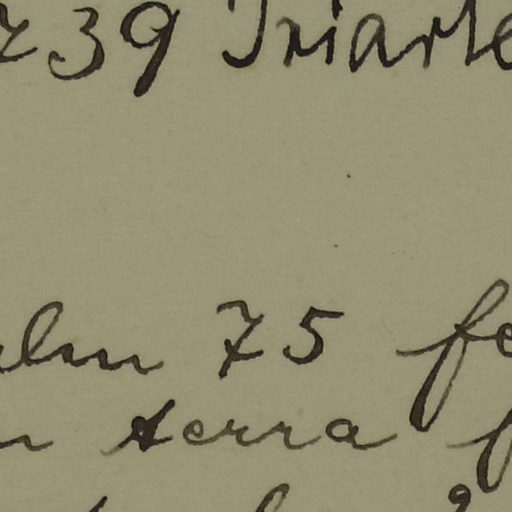 739 Iriarte
alm 75 fe
terra f